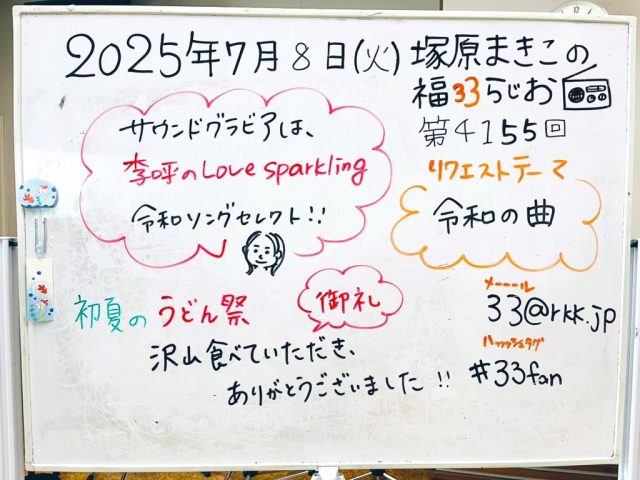 2025年7月8日(火) 塚原まきこの
福33らじお
第4155回
サウンドグラビアは、
李呼のLove sparkling
令和ソングセレクト!!
リクエストテーマ
令和の曲
初夏のうどん祭
御礼
沢山食べていただき、
ありがとうございました!!
メーーール
33@rkk.jp
ハッッシュタグ
#33fan